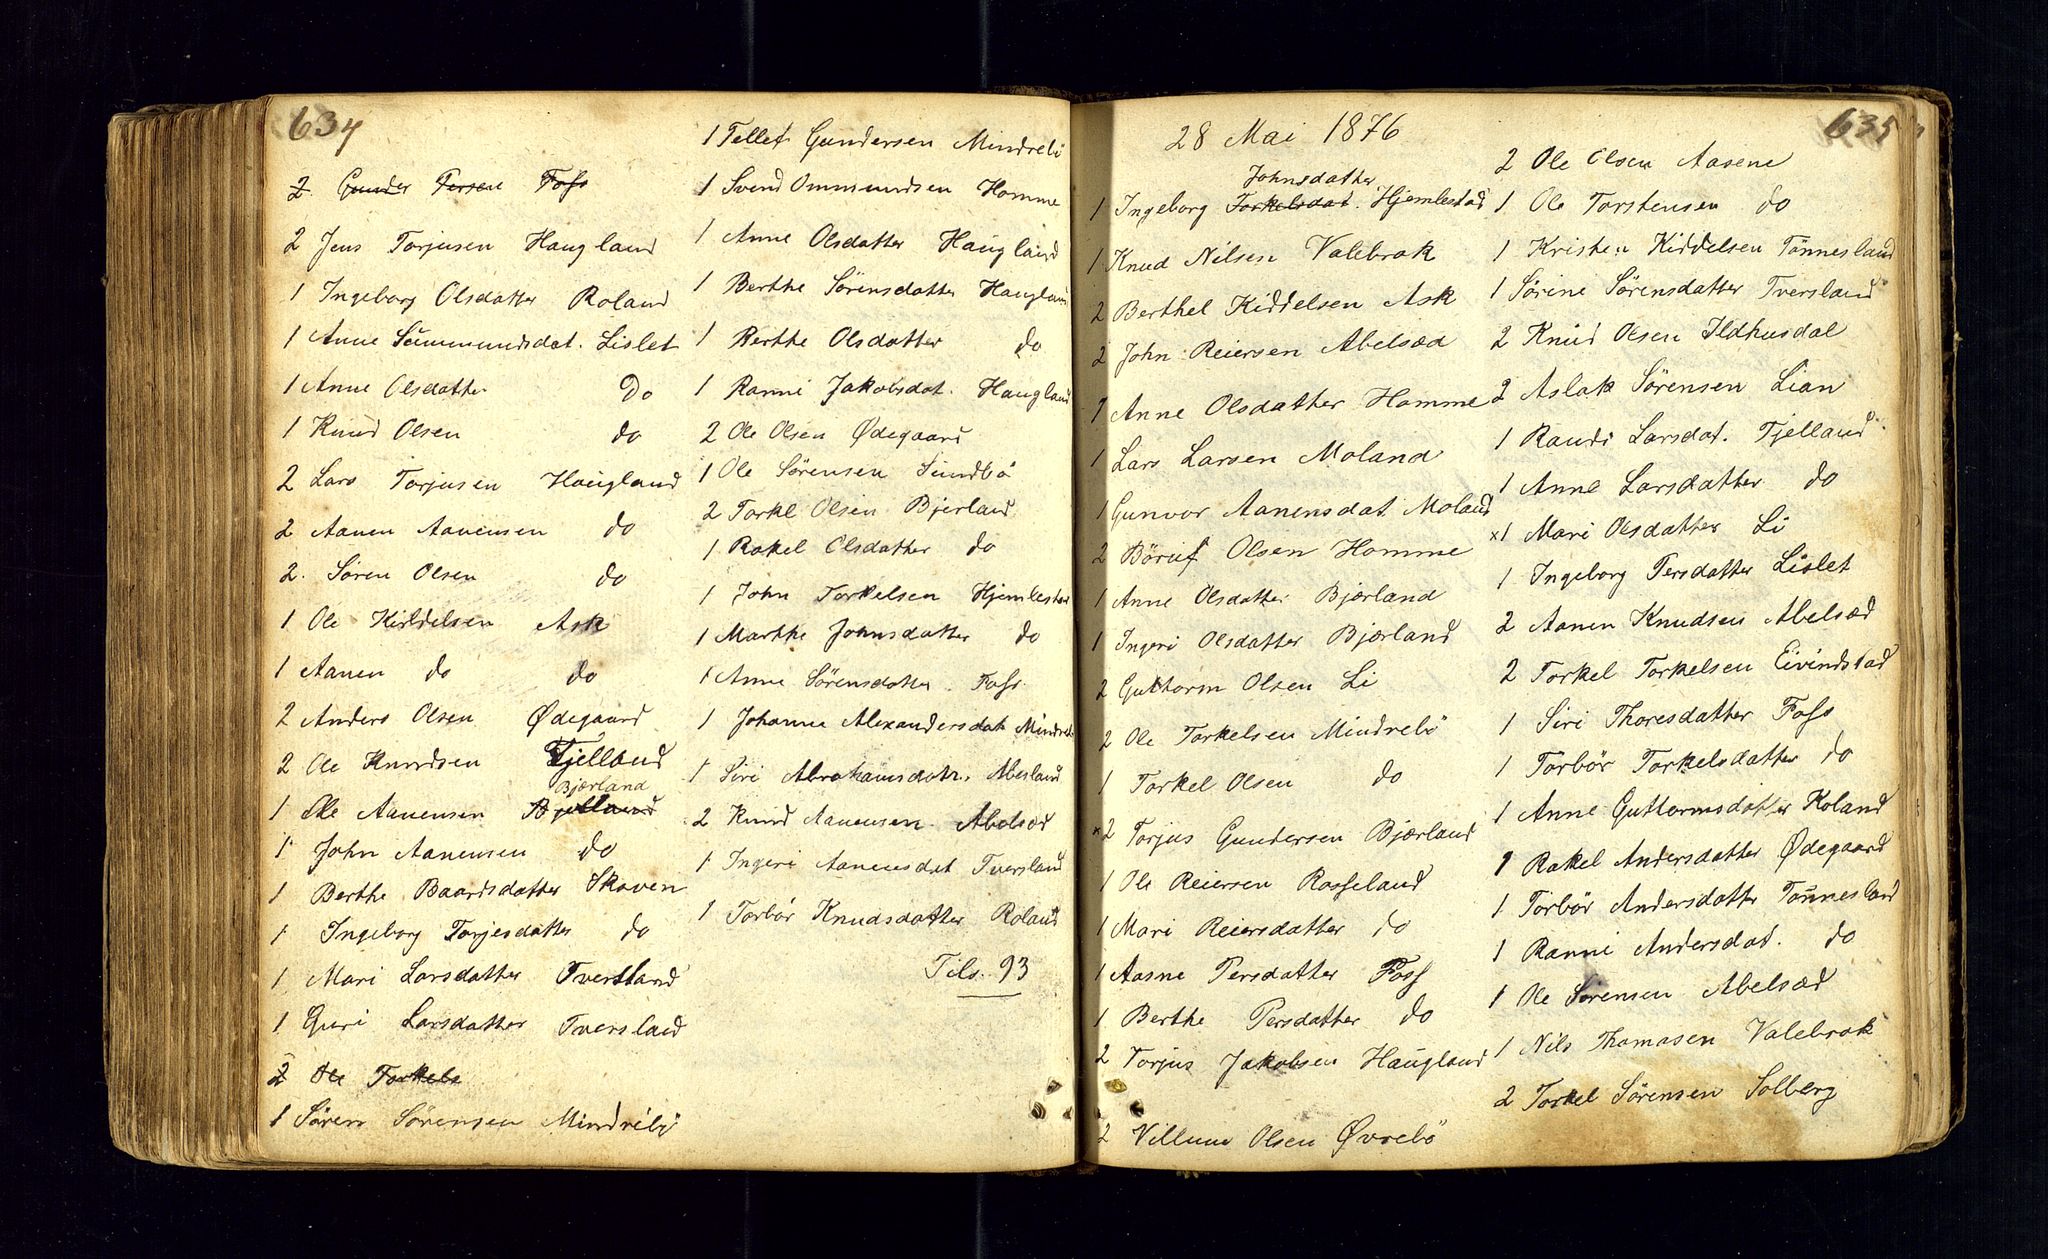 634
2 Gunder Persen Foss
2 Jens Torjusen Haugland
1 Ingeborg Olsdatter Roland
1 Anne Sümmundsdat. Lislet
1 Anne Olsdatter Do
1 Knud Olsen do
2 Lars Torjusen Haugland
2 Aanen Aanensen do
2. Søren Olsen do
1 Ole Kiddelsen Ask
1 Aanen do do
2 Anders Olsen Ødegaard
2 Ole Knudsen Tjelland
Bjærland
1 Ole Aanensen Bjelland
1 John Aanensen do
1 Berthe Baardsdatter Skoven
1 Ingeborg Torjesdatter do
1 Mari Larsdatter Tversland
1 Guri Larsdatter Tversland
2 Ole Torkels
1 Sören Sörensen Mindrebö
1 Tellef Gundersen Mindrebö
1 Svend Ommundsen Homme
1 Anne Olsdatter Haugland
1 Berthe Sörensdatter Haugland
1 Berthe Olsdatter do
1 Ranni Jakobsdat. Haugland
2 Ole Olsen Ødegaard
1 Ole Sörensen Sundbö
2 Torkel Olsen Bjerland
1 Rakel Olsdatter do
1 John Torkelsen Hjemlestad
1 Marthe Johnsdatter do
1 Anne Sörensdatter Foss
1 Johanne Alexandersdat Mindreb
1 Siri Abrahamsdatr. Abesland
2 Knud Aanensen Abelsæd
1 Ingeri Aanensdat Tversland
1 Torbör Knudsdatter Roland
Tils. 93
635
28 Mai 1876
Johnsdatter
1 Ingeborg Torkelsdat. Hjemlestad
1 Knud Nilsen Valebrok
2 Berthel Kiddelsen Ask
2 John Reiersen Abelsæd
1 Anne Olsdatter Homme
1 Lars Larsen Moland
1 Gunvor Aanensdat Moland
2 Böruf Olsen Homme
1 Anne Olsdatter Bjærland
1 Ingeri Olsdatter Bjærland
2 Guttorm Olsen Li
2 Ole Torkelsen Mindrebö
1 Torkel Olsen do
x2 Torjus Gundersen Bjærland
1 Ole Reiersen Rosseland
1 Mari Reiersdatter do
1 Aasne Persdatter Foss
1 Berthe Persdatter do
2 Torjus Jakobsen Haugland
2 Villum Olsen Øvrebö
2 Ole Olsen Aasene
1 Ole Torstensen do
1 Kristen Kiddelsen Tönnesland
1 Sörine Sörensdatter Tversland
2 Knud Olsen Ildhusdal
2 Aslak Sörensen Lian
1 Randi Larsdat. Tjelland
1 Anne Larsdatter do
x1 Mari Olsdatter Li
1 Ingeborg Persdatter Lislet
2 Aanen Knudsen Abelsæd
2 Torkel Torkelsen Eivindstad
1 Siri Thoresdatter Foss
1 Torbör Torkelsdatter do
1 Anne Guttormsdatter Roland
1 Rakel Andersdatter Ødegaard
1 Torbör Andersdatter Tönnesland
1 Ranni Andersdat. do
1 Ole Sörensen Abelsæd
1 Nils Thomasen Valebrok
2 Torkel Sörensen Solberg